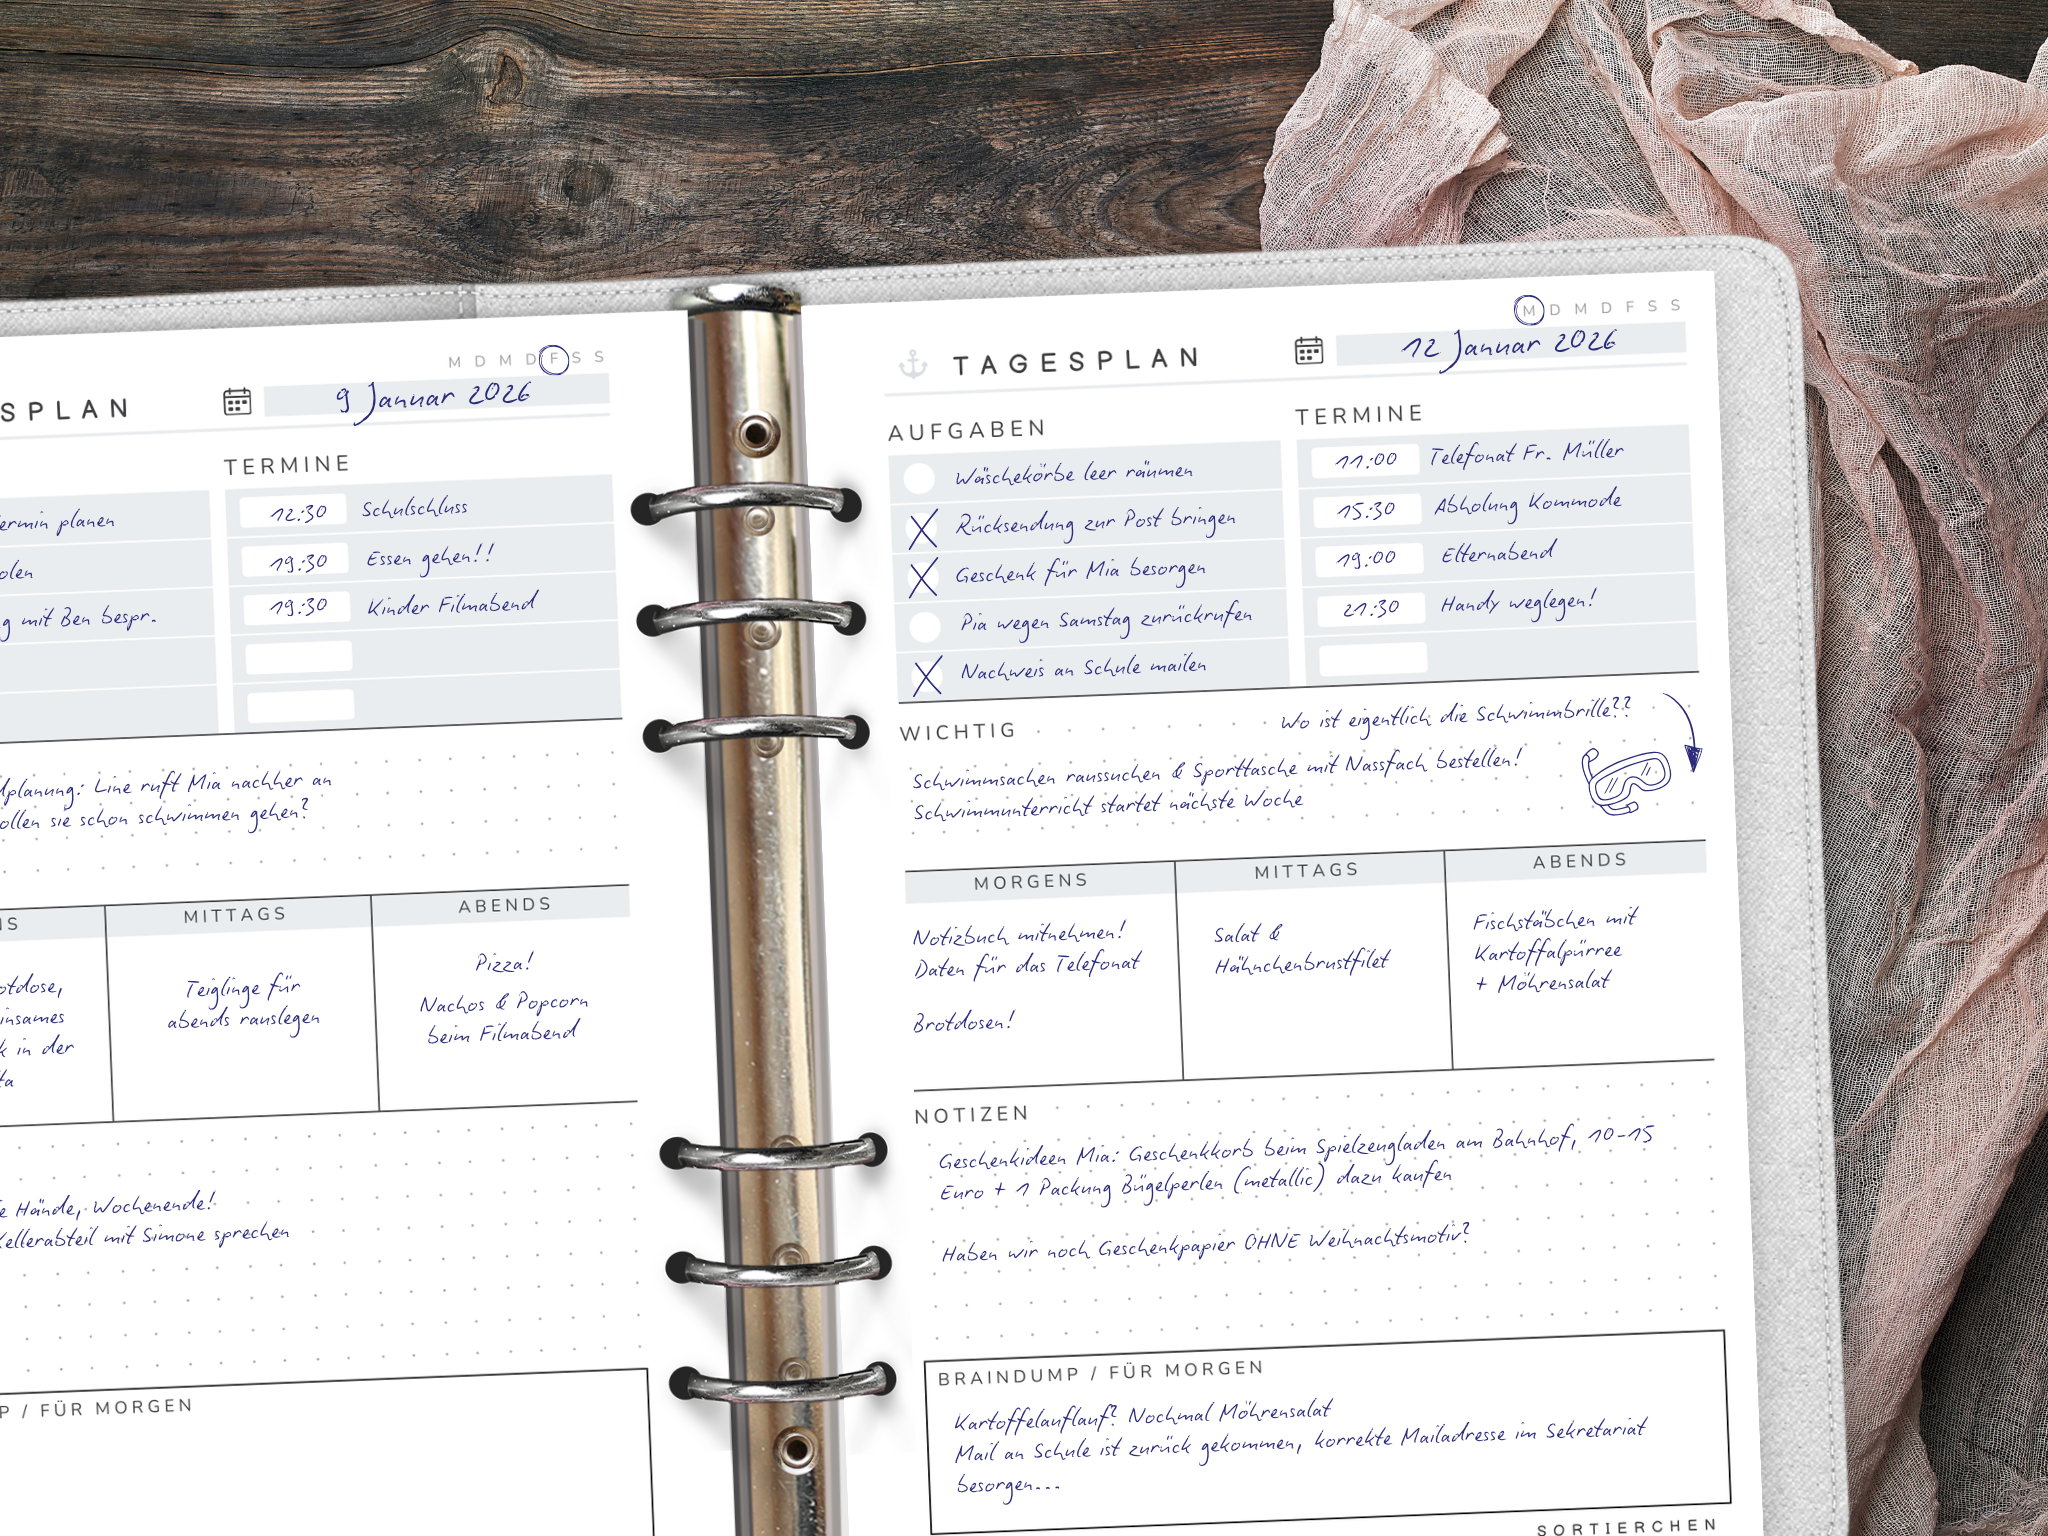 M D M D F S S
SPLAN
9 Januar 2026
TERMINE
termin planen
olen
g mit Ben bespr.
12:30 Schulschluss
19:30 Essen gehen!!
19:30 Kinder Filmabend
lplanung: Line ruft Mia nachher an
ollen sie schon schwimmen gehen?
NS
MITTAGS
ABENDS
otdose,
insames
k in der
ta
Teiglinge für
abends rauslegen
Pizza!
Nachos & Popcorn
beim Filmabend
e Hände, Wochenende!
Kellerabteil mit Simone sprechen
P / FÜR MORGEN
M D M D F S S
TAGESPLAN
12 Januar 2026
AUFGABEN
Wäschekörbe leer räumen
Rücksendung zur Post bringen
Geschenk für Mia besorgen
Pia wegen Samstag zurückrufen
Nachweis an Schule mailen
TERMINE
11:00 Telefonat Fr. Müller
15:30 Abholung Kommode
19:00 Elternabend
21:30 Handy weglegen!
WICHTIG
Wo ist eigentlich die Schwimmbrille??
Schwimmsachen raussuchen & Sporttasche mit Nassfach bestellen!
Schwimmunterricht startet nächste Woche
MORGENS
Notizbuch mitnehmen!
Daten für das Telefonat
Brotdosen!
MITTAGS
Salat &
Hähnchenbrustfilet
ABENDS
Fischstäbchen mit
Kartoffalpürree
+ Möhrensalat
NOTIZEN
Geschenkideen Mia: Geschenkkorb beim Spielzeugladen am Bahnhof, 10-15
Euro + 1 Packung Bügelperlen (metallic) dazu kaufen
Haben wir noch Geschenkpapier OHNE Weihnachtsmotiv?
BRAINDUMP / FÜR MORGEN
Kartoffelauflauf? Nochmal Möhrensalat
Mail an Schule ist zurück gekommen, korrekte Mailadresse im Sekretariat
besorgen...
SORTIERCHEN